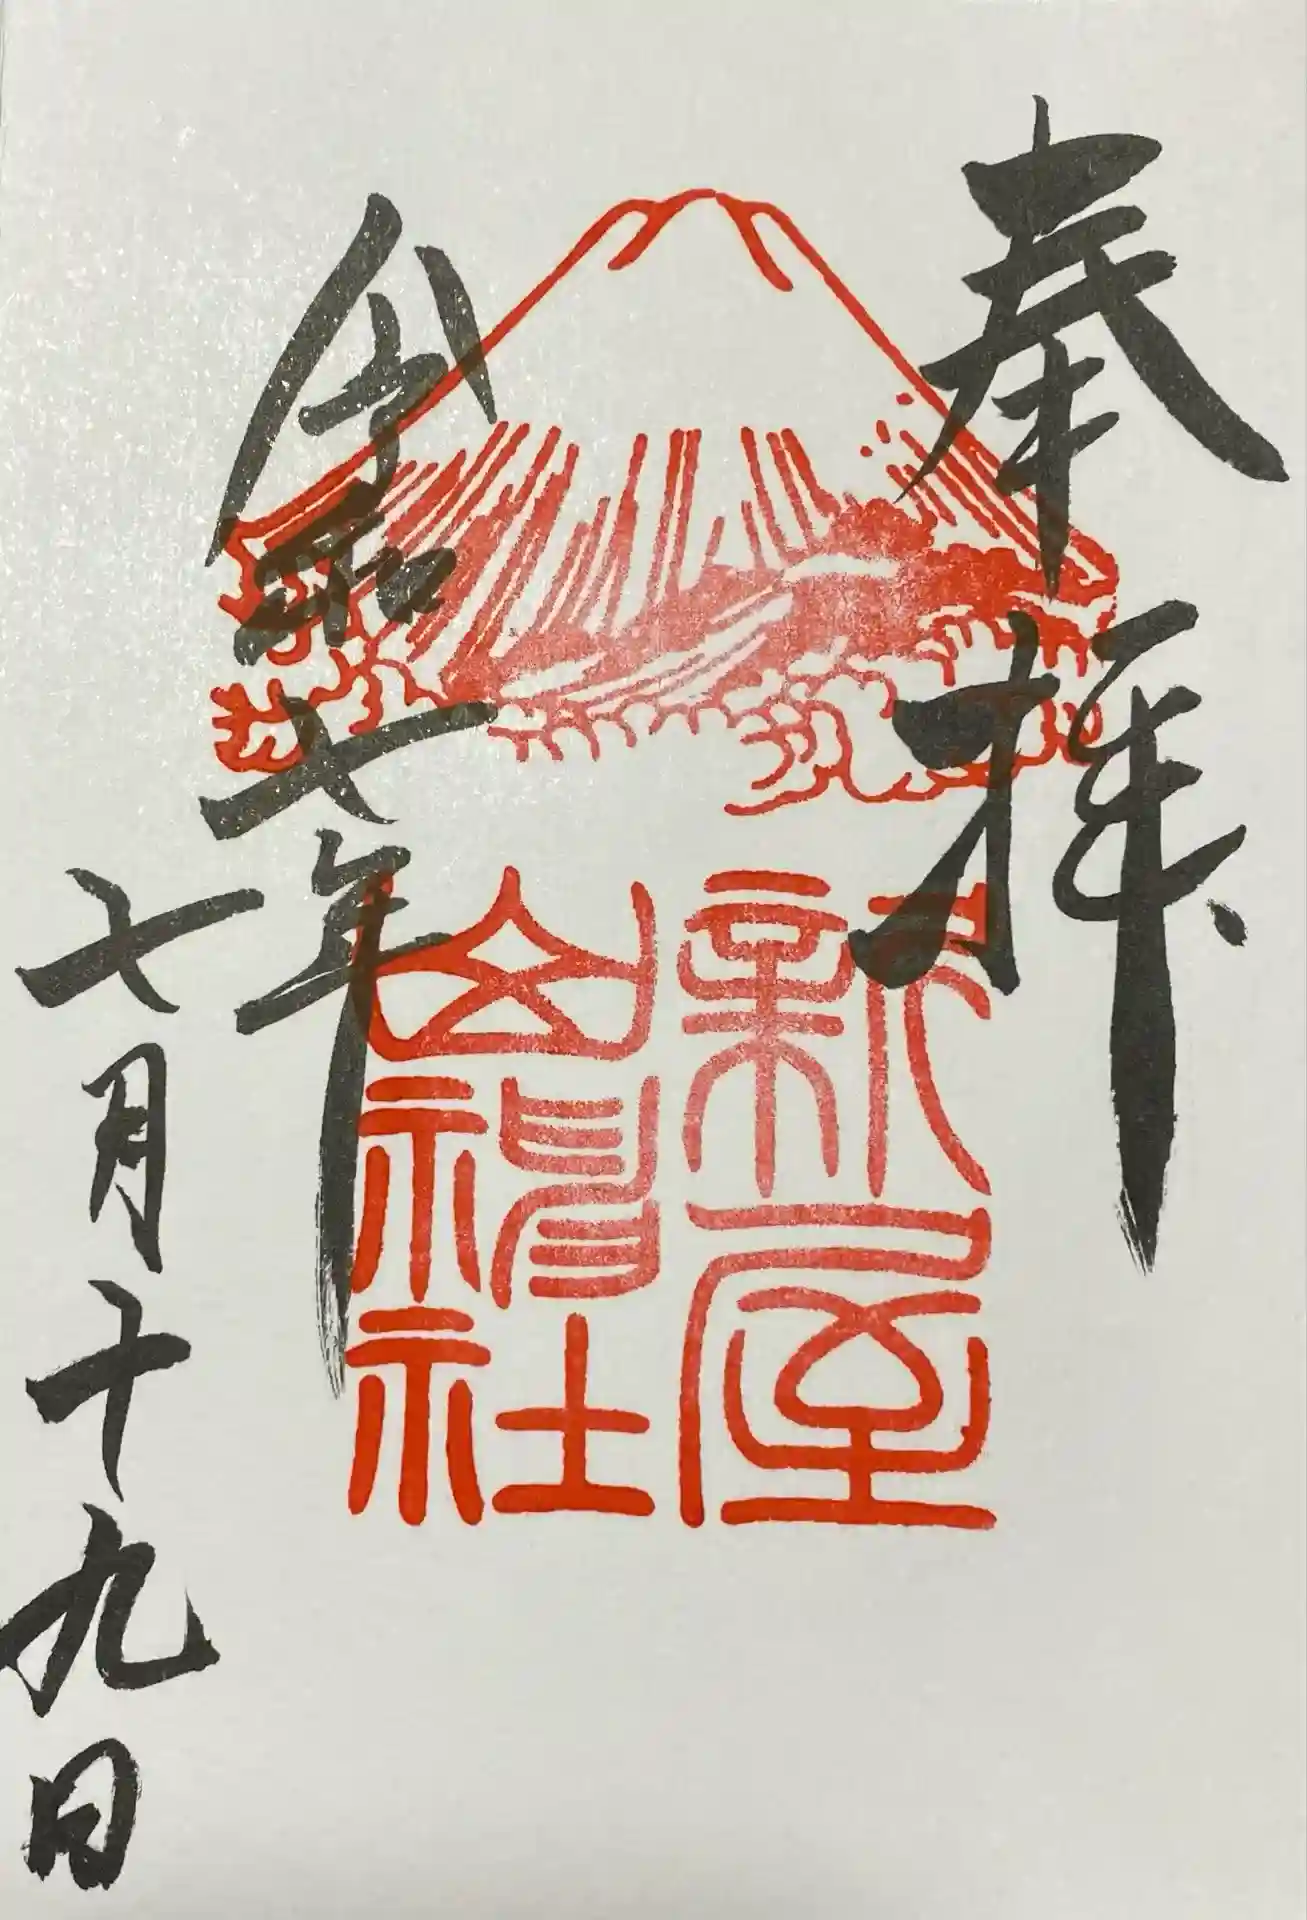 奉拝
新屋
山神社
令和七年
七月十九日